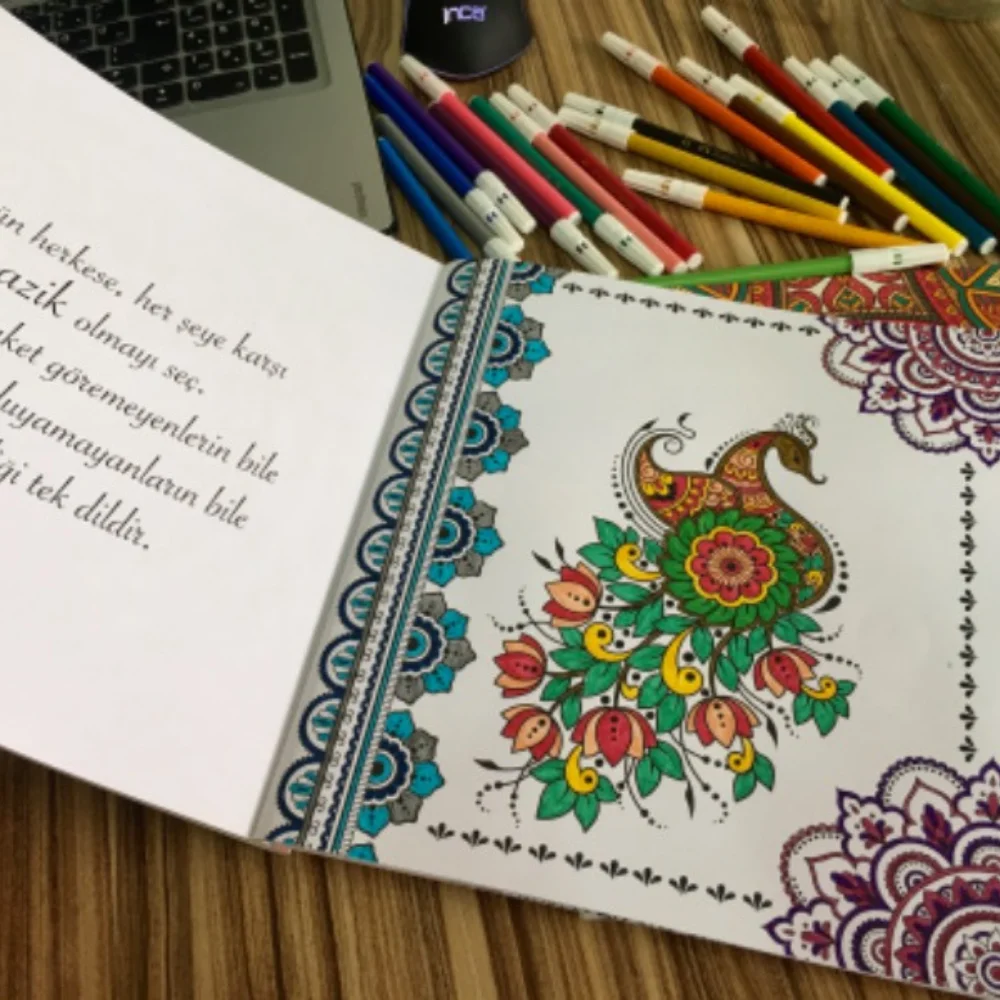 inca
herkese, her şeye karşı
olmayı seç.
göremeyenlerin bile
duyamayanların bile
tek dildir.